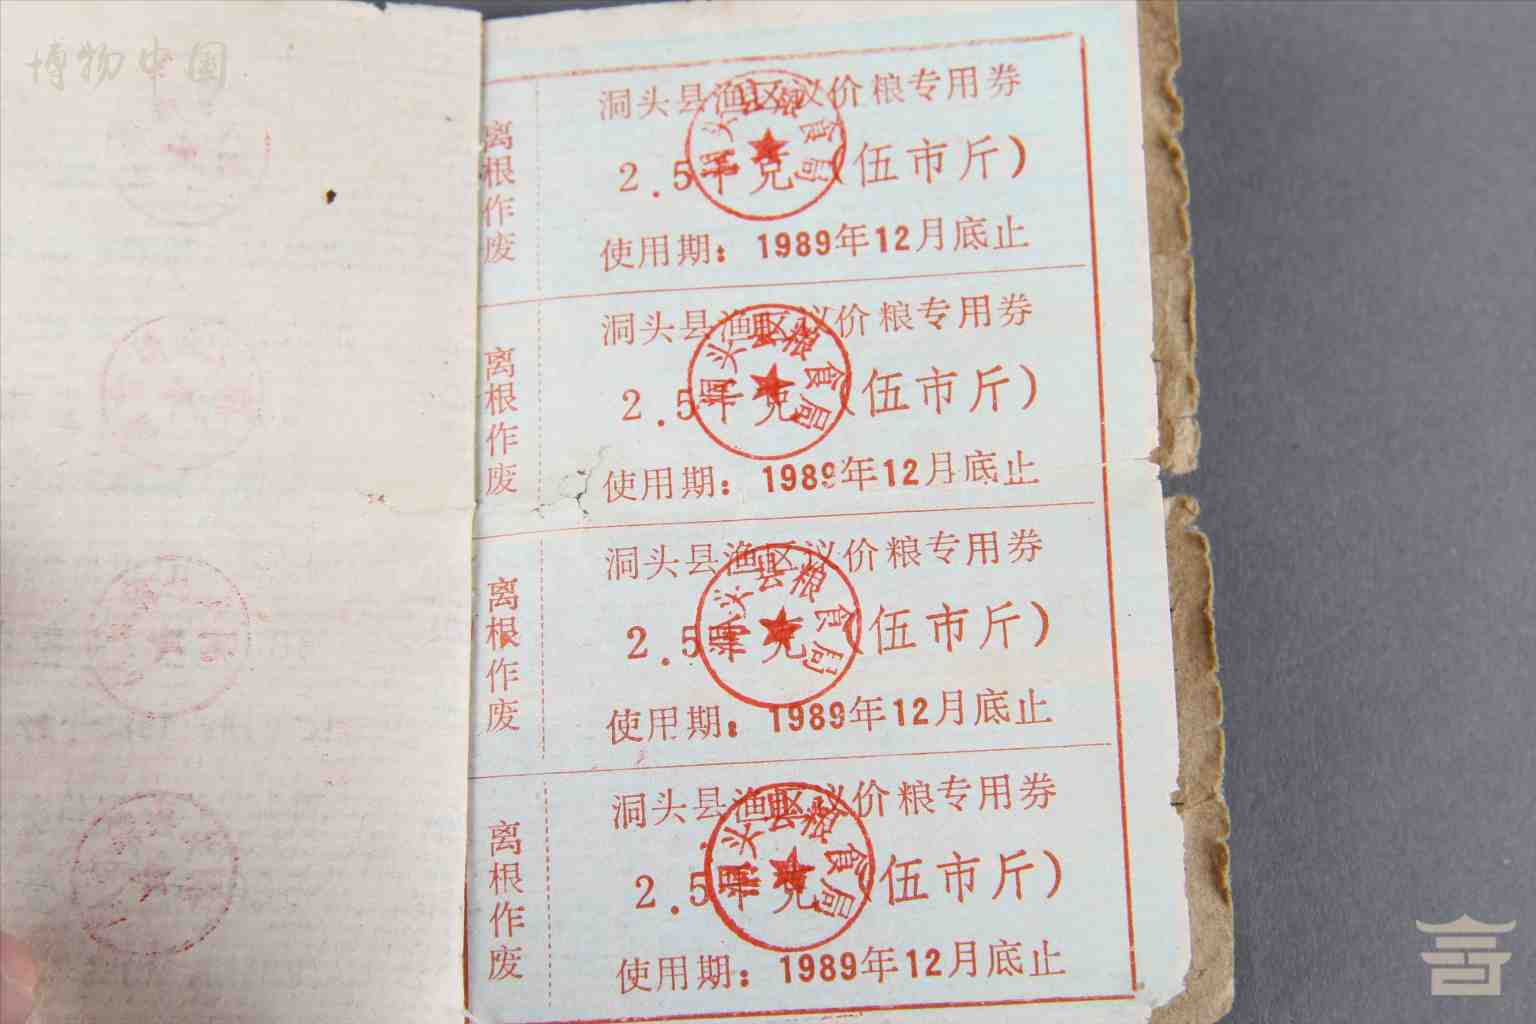 博物中国
离根作废
洞头县渔区议价粮专用券
2.5千克(伍市斤)
使用期：1989年12月底止
洞头县粮食局
离根作废
洞头县渔区议价粮专用券
2.5千克(伍市斤)
使用期：1989年12月底止
洞头县粮食局
离根作废
洞头县渔区议价粮专用券
2.5千克(伍市斤)
使用期：1989年12月底止
洞头县粮食局
离根作废
洞头县渔区议价粮专用券
2.5千克(伍市斤)
使用期：1989年12月底止
洞头县粮食局